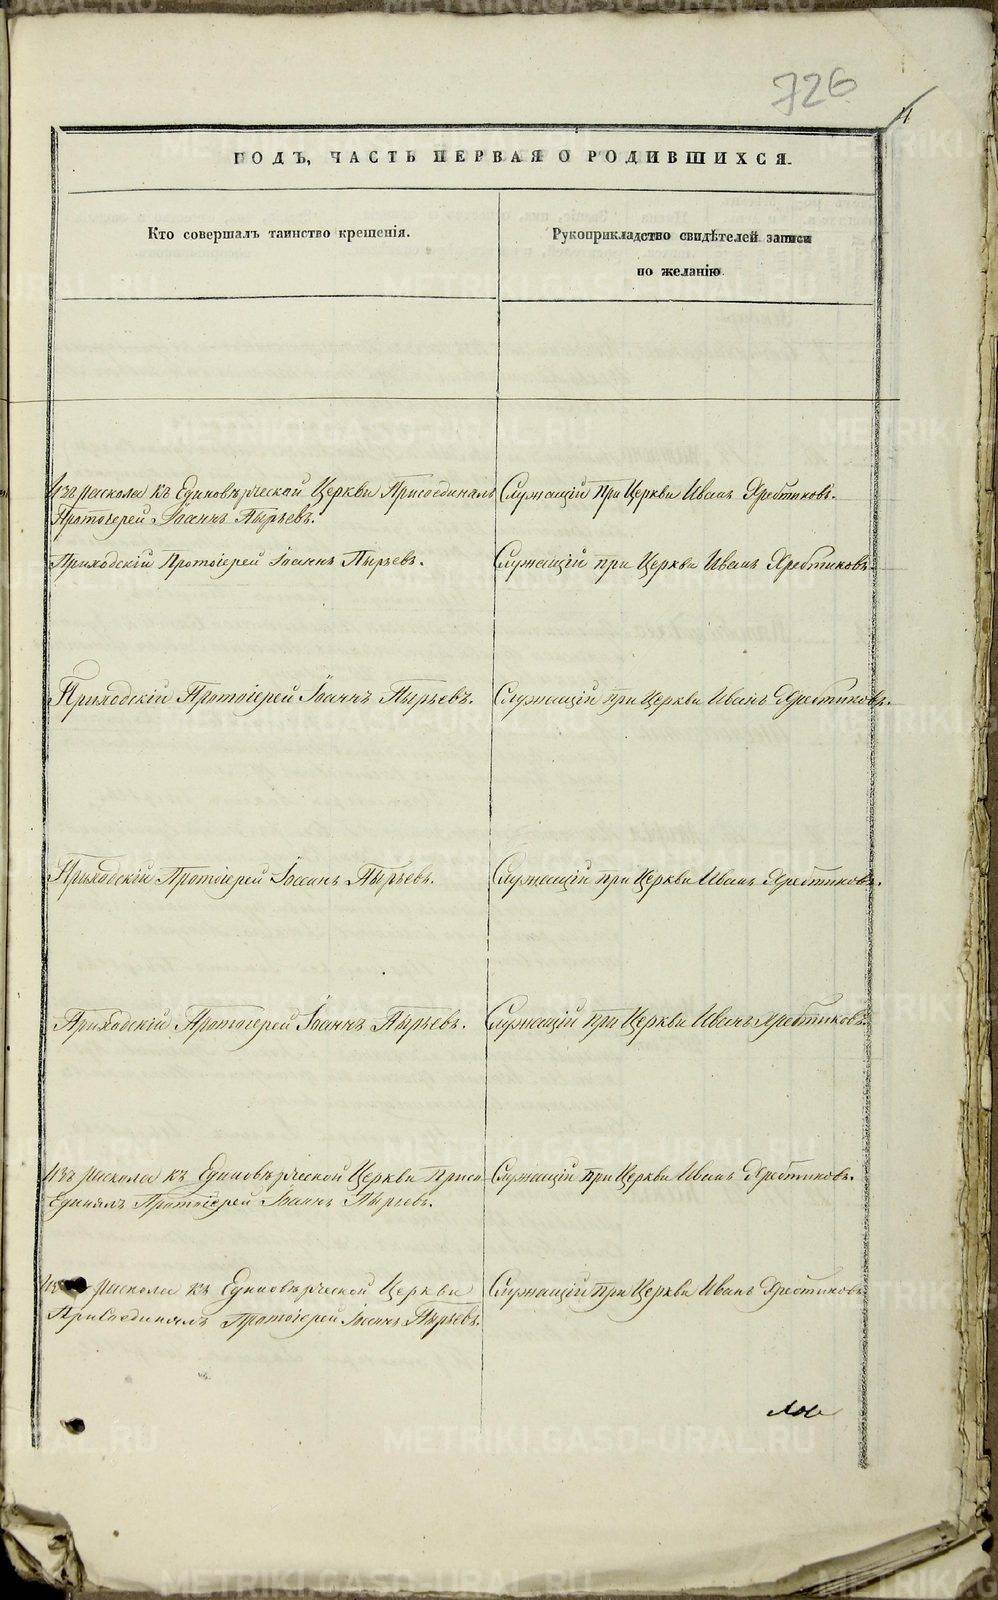 726
4
ГОДЪ, ЧАСТЬ ПЕРВАЯ О РОДИВШИХСЯ.
Кто совершалъ таинство крещенія.
Рукоприкладство свидѣтелей записи
по желанію
Изъ раскола къ Единовѣрческой Церкви Присоединялъ
Протоіерей Іоаннъ Пырьевъ.
Служащій при Церкви Иванъ Хребтиковъ.
Приходскій Протоіерей Іоаннъ Пырьевъ.
Служащій при Церкви Иванъ Хребтиковъ.
Приходскій Протоіерей Іоаннъ Пырьевъ.
Служащій при Церкви Иванъ Хребтиковъ.
Приходскій Протоіерей Іоаннъ Пырьевъ.
Служащій при Церкви Иванъ Хребтиковъ.
Приходскій Протоіерей Іоаннъ Пырьевъ.
Служащій при Церкви Иванъ Хребтиковъ.
Изъ раскола къ Единовѣрческой Церкви Присо
единялъ Протоіерей Іоаннъ Пырьевъ.
Служащій при Церкви Иванъ Хребтиковъ.
Изъ раскола къ Единовѣрческой Церкви
Присоединялъ Протоіерей Іоаннъ Пырьевъ.
Служащій при Церкви Иванъ Хребтиковъ
METRIKI.GASO-URAL.RU